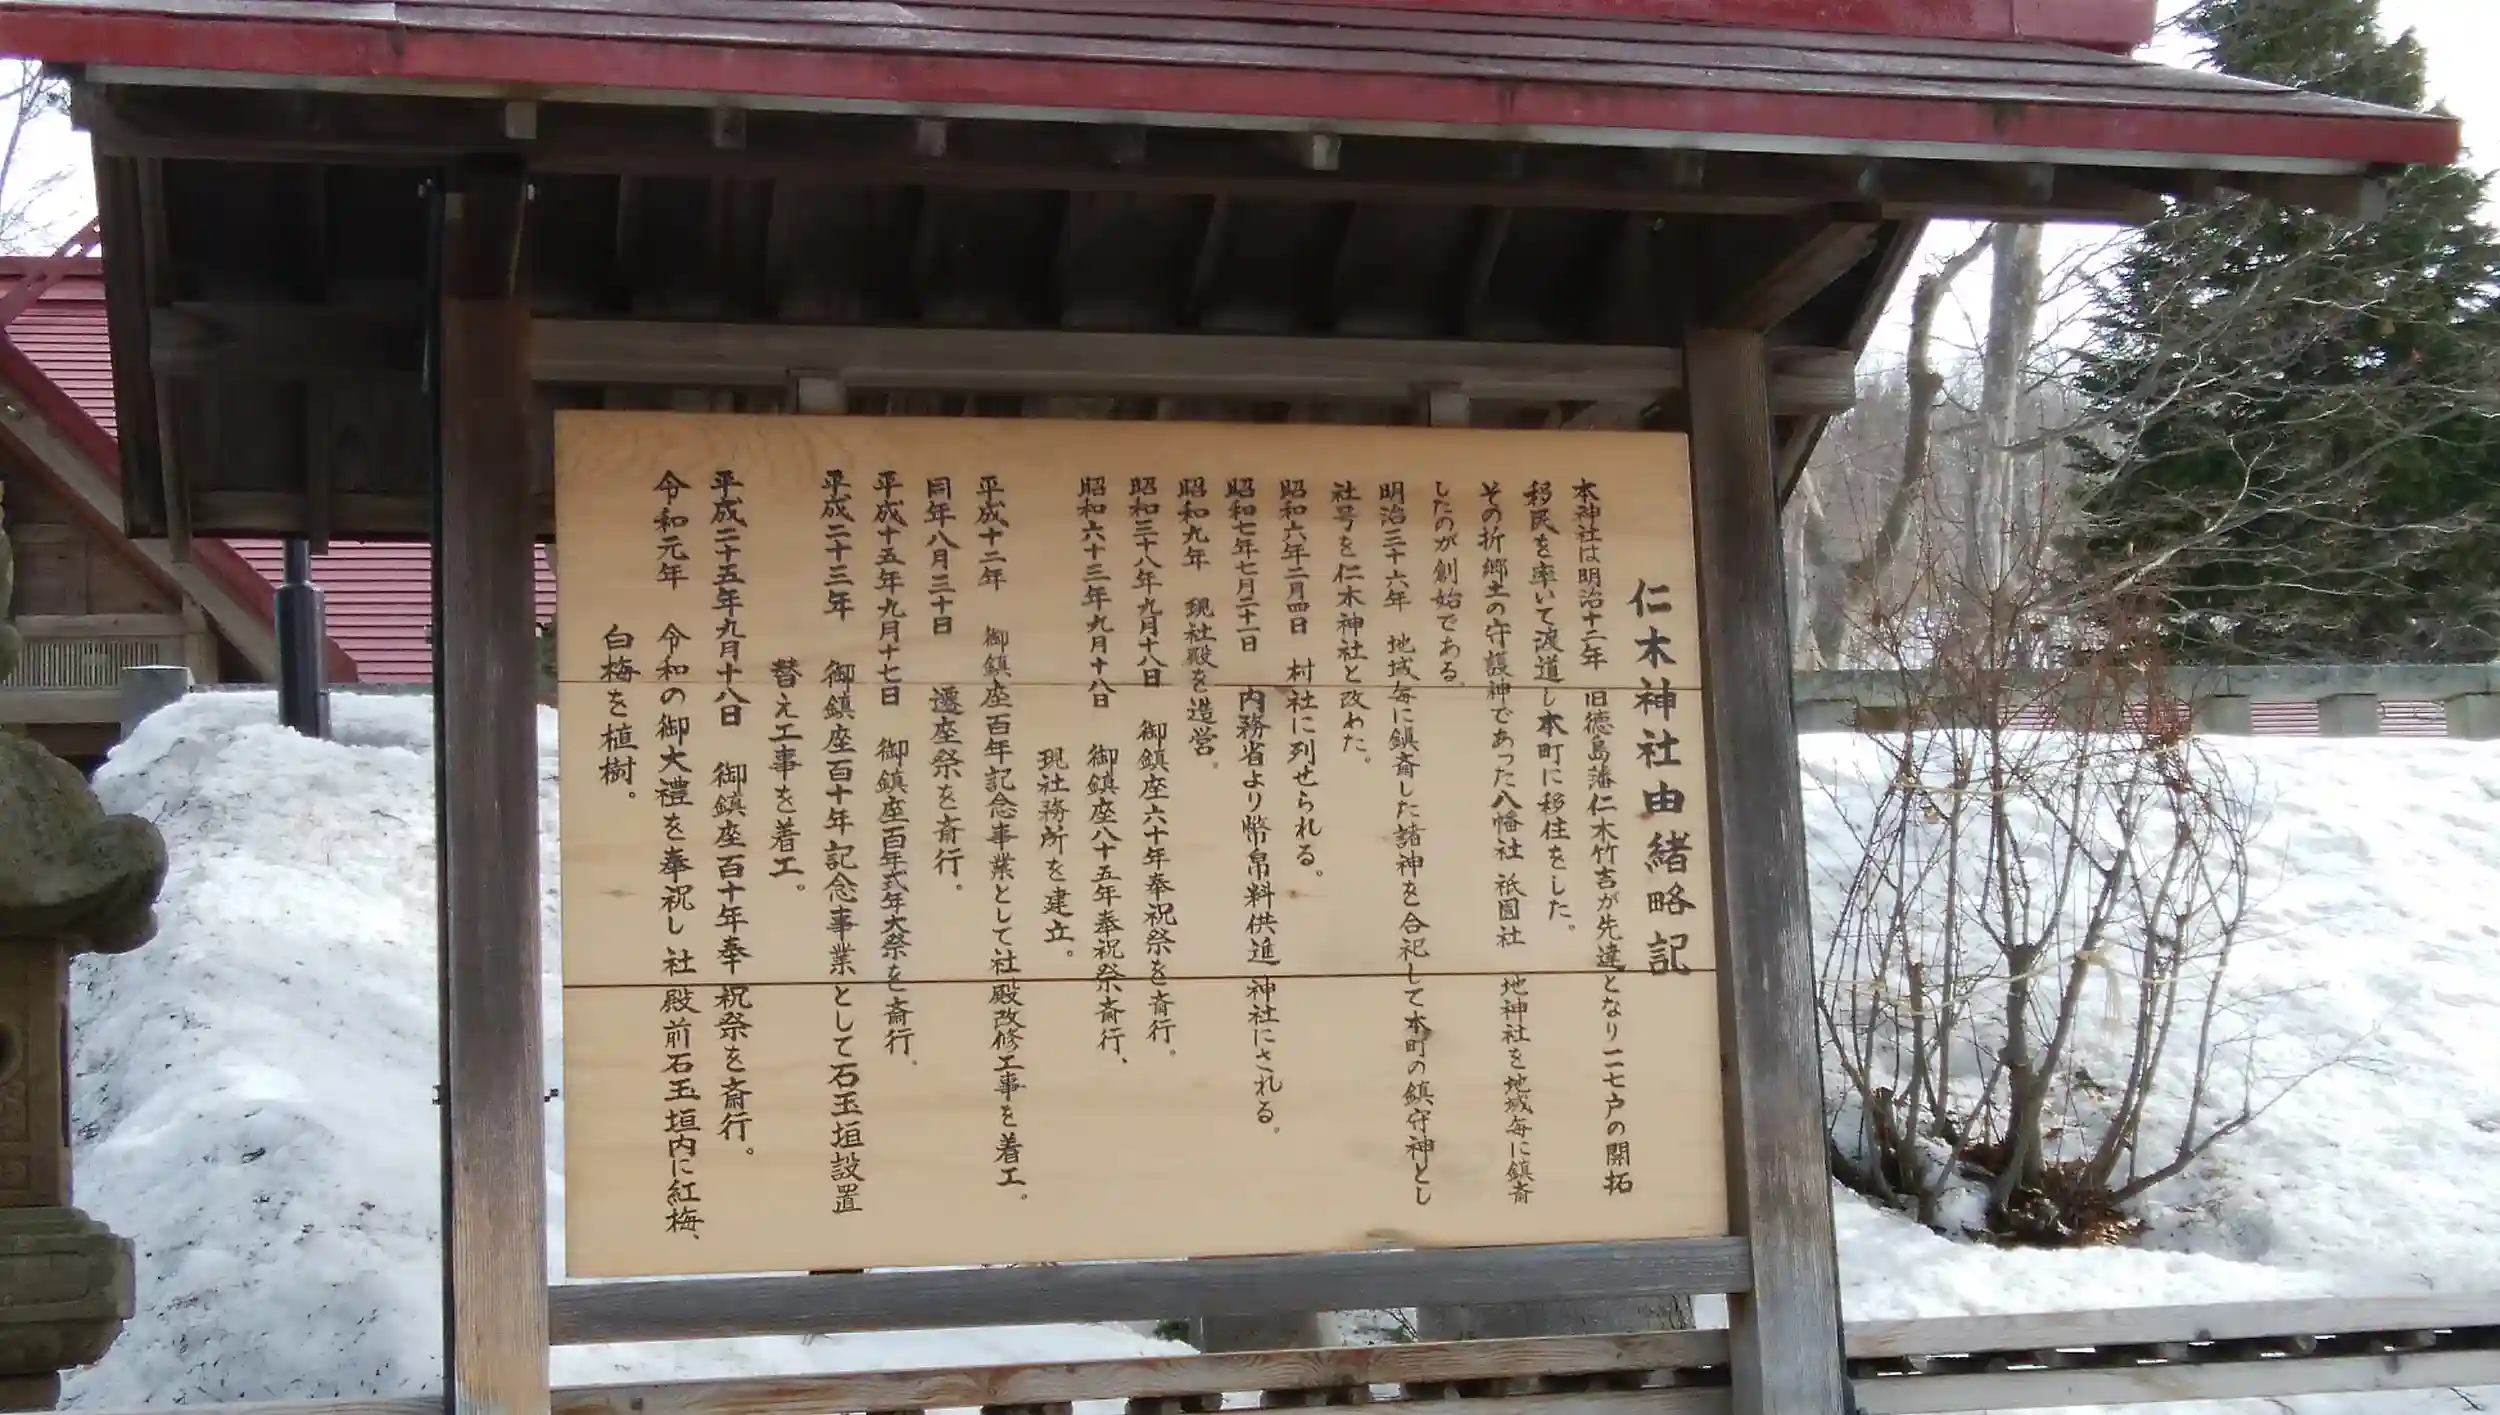 仁木神社由緒略記
本神社は明治十二年 旧徳島藩仁木竹吉が先達となり二七戸の開拓
移民を率いて渡道し本町に移住をした。
その折郷土の守護神であった八幡社 祇園社 地神社を地域毎に鎮斎
したのが創始である。
明治三十六年 地域毎に鎮斎した諸神を合祀して本町の鎮守神とし
社号を仁木神社と改めた。
昭和六年二月四日 村社に列せられる。
昭和七年七月二十一日 内務省より幣帛料供進神社にされる。
昭和九年 現社殿を造営。
昭和三十八年九月十八日 御鎮座六十年奉祝祭を斎行。
昭和六十三年九月十八日 御鎮座八十五年奉祝祭斎行、
現社務所を建立。
平成十二年 御鎮座百年記念事業として社殿改修工事を着工。
同年八月三十日 遷座祭を斎行。
平成十五年九月十七日 御鎮座百年式年大祭を斎行。
平成二十三年 御鎮座百十年記念事業として石玉垣設置
替え工事を着工。
平成二十五年九月十八日 御鎮座百十年奉祝祭を斎行。
令和元年 令和の御大禮を奉祝し社殿前石玉垣内に紅梅、
白梅を植樹。